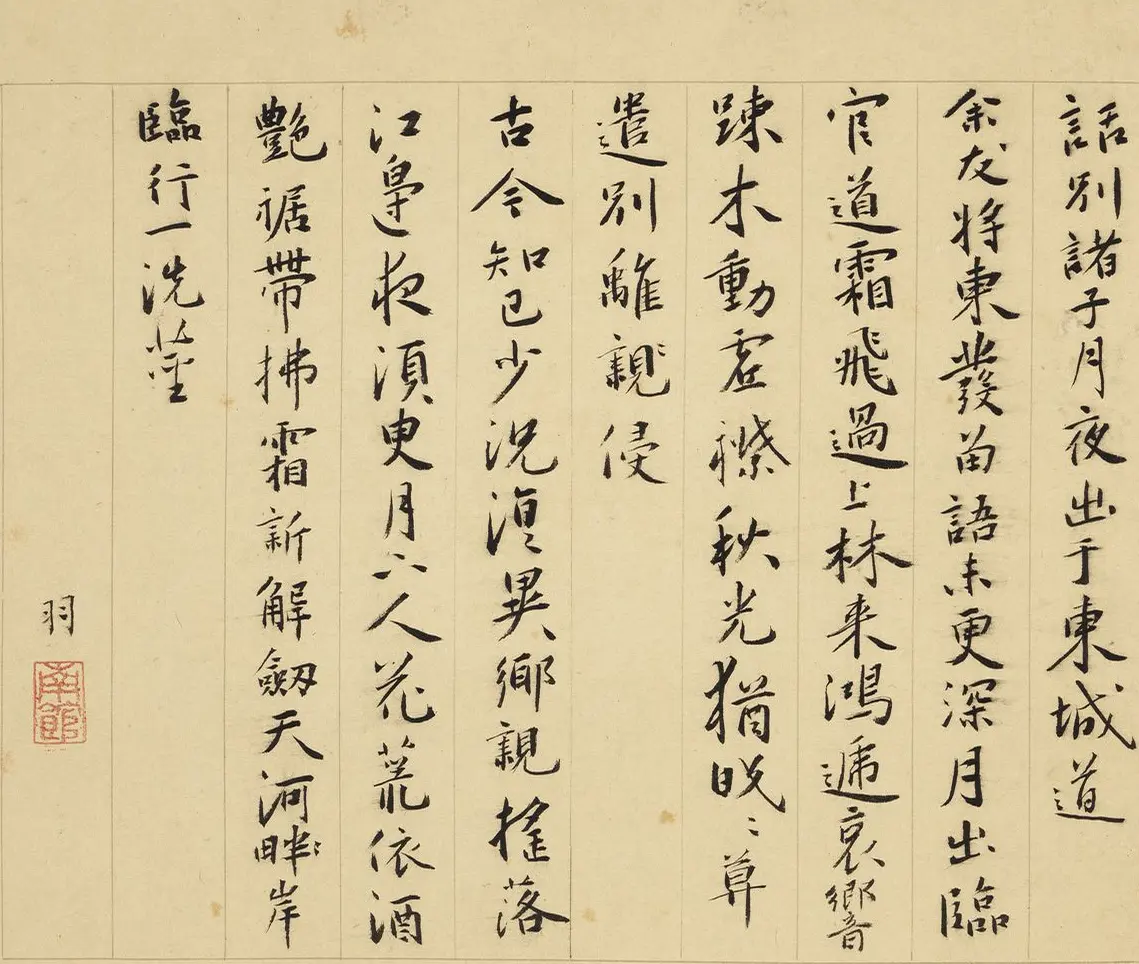 話別諸子月夜出于東城道
余友將東發留語未更深月出臨
官道霜飛過上林来鴻遞哀響
踈木動虛襟秋光猶晩〻尊
遣別離親〻侵
古今知己少況復異鄉親搖落
江皐邊夜須更月六人花荒依酒
艷裾帶拂霜新解劔天河畔〻岸
臨行一洗塵
羽
南館